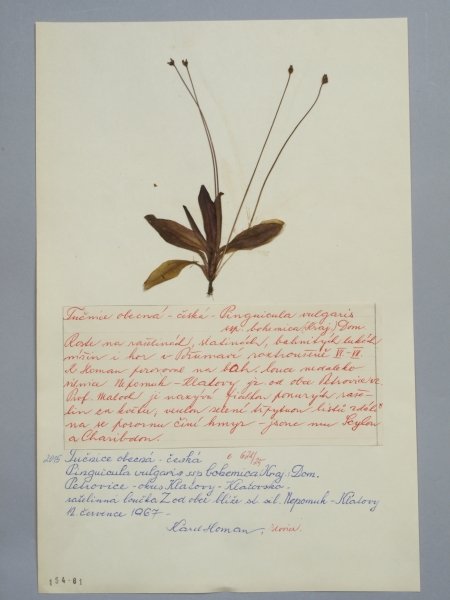 Tučnice obecná - česká - Pinguicula vulgaris
ssp. bohemica (Kraj.) Dom.
Roste na rašelinách, slatinách, bahnitých lukách
nížin i hor v roztroušeně VI-
K. Homan pozoroval na bah. louce nedaleko
silnice Nepomuk - Klatovy jz od obce Petrovice
Prof. Maloch je nazývá ponurých raše-
lin za květu, zeleně listů zdáli
na se pozornu činí hmyz - jsouc mu Scyllou
a Charibdou.
2015 Tučnice obecná - česká
Pinguicula vulgaris ssp. bohemica Kraj. Dom.
Petrovice - okres Klatovy - Klatovsko -
rašelinná loučka Z od obce blíže st. sil. Nepomuk - Klatovy
12. července 1967 -
Karel Homan,
154-81